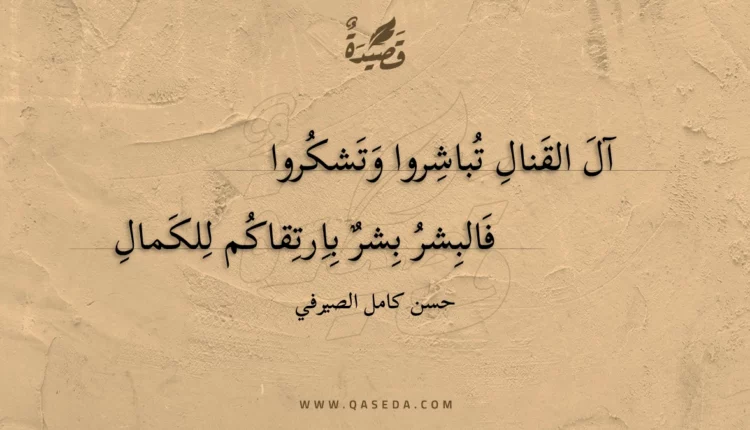 قَصِيْدَةٌ
آلَ القَنالِ تُباشِروا وَتَشكُروا
فَالبِشرُ بِشرٌ بِاِرتِقاكُم لِلكَمالِ
حسن كامل الصيرفي
WWW.QASEDA.COM